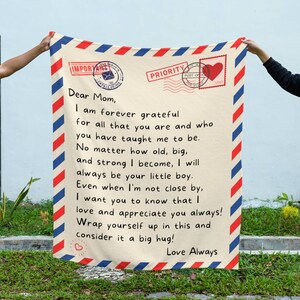 IMPORTANT
PRIORITY
Dear Mom,
I am forever grateful
for all that you are and who
you have taught me to be.
No matter how old, big,
and strong I become, I will
always be your little boy.
Even when I'm not close by,
I want you to know that I
love and appreciate you always!
Wrap yourself up in this and
consider it a big hug!
Love Always